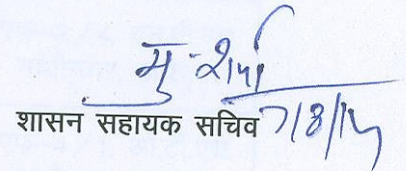 मु. शर्मा
शासन सहायक सचिव 7/8/14